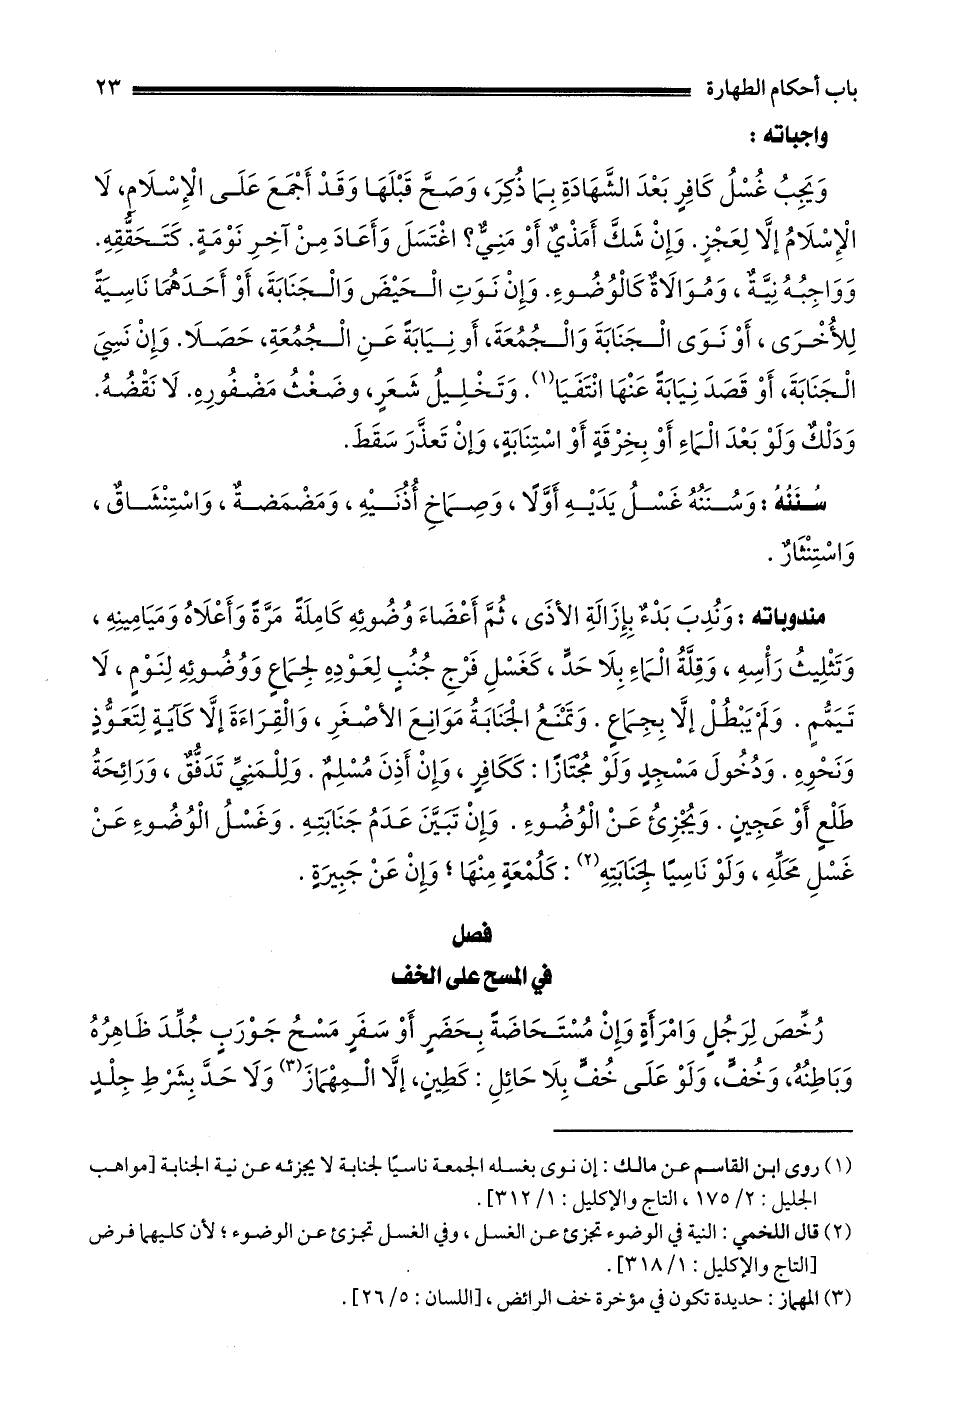 باب أحكام الطهارة ٢٣
واجباته :
وَيَجِبُ غُسْلُ كَافِرٍ بَعْدَ الشَّهَادَةِ بِمَا ذُكِرَ، وَصَحَّ قَبْلَهَا وَقَدْ أَجْمَعَ عَلَى الْإِسْلَامِ، لَا
الْإِسْلَامُ إلَّا لِعَجْزٍ. وَإِنْ شَكَّ أَمَذْيٌ أَوْ مَنِيٌّ؟ اغْتَسَلَ وَأَعَادَ مِنْ آخِرِ نَوْمَةٍ. كَتَحَقُّقِهِ.
وَوَاجِبُهُ نِيَّةٌ ، وَمُوَالَاةٌ كَالْوُضُوءِ. وَإِنْ نَوَتِ الْحَيْضَ وَالْجَنَابَةَ، أَوْ أَحَدَهُمَا نَاسِيَةً
لِلأُخْرَى ، أَوْ نَوَى الْجَنَابَةَ وَالْجُمُعَةَ، أو نِيَابَةً عَنِ الْجُمُعَةِ، حَصَلَا. وَإِنْ نَسِيَ
الْجَنَابَةَ، أَوْ قَصَدَ نِيَابَةً عَنْهَا انْتَفَيَا(١). وَتَخْلِيلُ شَعَرٍ، وضَغْثُ مَضْفُورِهِ. لَا نَقْضُهُ.
وَدَلْكٌ وَلَوْ بَعْدَ الْمَاءِ أَوْ بِخِرْقَةٍ أَوْ اسْتِنَابَةٍ، وَإِنْ تَعذَّرَ سَقَطَ.
سُنَنُهُ : وَسُنَنُهُ غَسْلُ يَدَيْهِ أَوَّلًا ، وَصِمَاخِ أُذُنَيْهِ ، وَمَضْمَضةٌ ، وَاسْتِنْشَاقٌ ،
وَاسْتِنْثَارٌ .
مندوباته : وَنُدِبَ بَدْءٌ بِإِزَالَةِ الأذَى ، ثُمَّ أَعْضَاءَ وُضُوئِهِ كَامِلَةً مَرَّةً وَأَعْلَاهُ وَمَيَامِنِهِ ،
وَتَثْلِيثُ رَأْسِهِ ، وَقِلَّةُ الْمَاءِ بِلَا حَدٍّ ، كَغَسْلِ فَرْجِ جُنُبٍ لِعَوْدِهِ لِجِمَاعٍ وَوُضُوئِهِ لِنَوْمٍ ، لَا
تَيَمُّمٍ . وَلَمْ يَبْطُلْ إلَّا بِجِمَاعٍ . وَتَمْنَعُ الْجَنَابَةُ مَوَانِعَ الأصْغَرِ ، وَالْقِرَاءَةَ إلَّا كَآيَةٍ لِتَعَوُّذٍ
وَنَحْوِهِ . وَدُخُولَ مَسْجِدٍ وَلَوْ مُجْتَازًا : كَكَافِرٍ ، وَإِنْ أَذِنَ مُسْلِمٌ . وَلِلْمَنِيِّ تَدَفُّقٌ ، وَرَائِحَةُ
طَلْعٍ أَوْ عَجِينٍ . وَيُجْزِئُ عَنْ الْوُضُوءِ . وَإِنْ تَبَيَّنَ عَدَمُ جَنَابَتِهِ . وَغَسْلُ الْوُضُوءِ عَنْ
غَسْلِ مَحَلِّهِ ، وَلَوْ نَاسِيًا لِجَنَابَتِهِ(٢) : كَلُمْعَةٍ مِنْهَا ؛ وَإِنْ عَنْ جَبِيرَةٍ .
فصل
في المسح على الخف
رُخِّصَ لِرَجُلٍ وَامْرَأَةٍ وَإِنْ مُسْتَحَاضَةً بِحَضَرٍ أَوْ سَفَرٍ مَسْحُ جَوْرَبٍ جُلِّدَ ظَاهِرُهُ
وَبَاطِنُهُ، وَخُفٍّ، وَلَوْ عَلَى خُفٍّ بِلَا حَائِلٍ : كَطِينٍ، إلَّا الْمِهْمَازَ(٣) وَلَا حَدَّ بِشَرْطِ جِلْدٍ
(١) روى ابن القاسم عن مالك : إن نوى بغسله الجمعة ناسيًا لجنابة لا يجزئه عن نية الجنابة [مواهب
الجليل : ٢/ ١٧٥ ، التاج والإكليل : ١/ ٣١٢] .
(٢) قال اللخمي : النية في الوضوء تجزئ عن الغسل ، وفي الغسل تجزئ عن الوضوء ؛ لأن كليهما فرض
[التاج والإكليل : ١/ ٣١٨] .
(٣) المهماز : حديدة تكون في مؤخرة خف الرائض ، [اللسان : ٥/ ٢٦] .